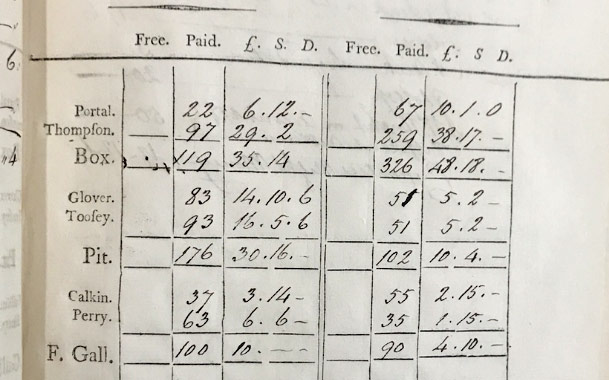 Free. Paid. £. S. D. Free. Paid. £. S D.
6.
Portal. 22 6.12.- 67 10.1.0
Thompson. 97 29. 2 259 38.17.-
Box. 119 35.14 326 48.18.-
Glover. 83 14.10.6 51 5.2-
Toosey. 93 16.5.6 51 5.2-
Pit. 176 30.16.- 102 10.4.-
Calkin. 37 3.14- 55 2.15.-
Perry. 63 6.6- 35 1.15.-
F. Gall. 100 10.-- 90 4.10.-